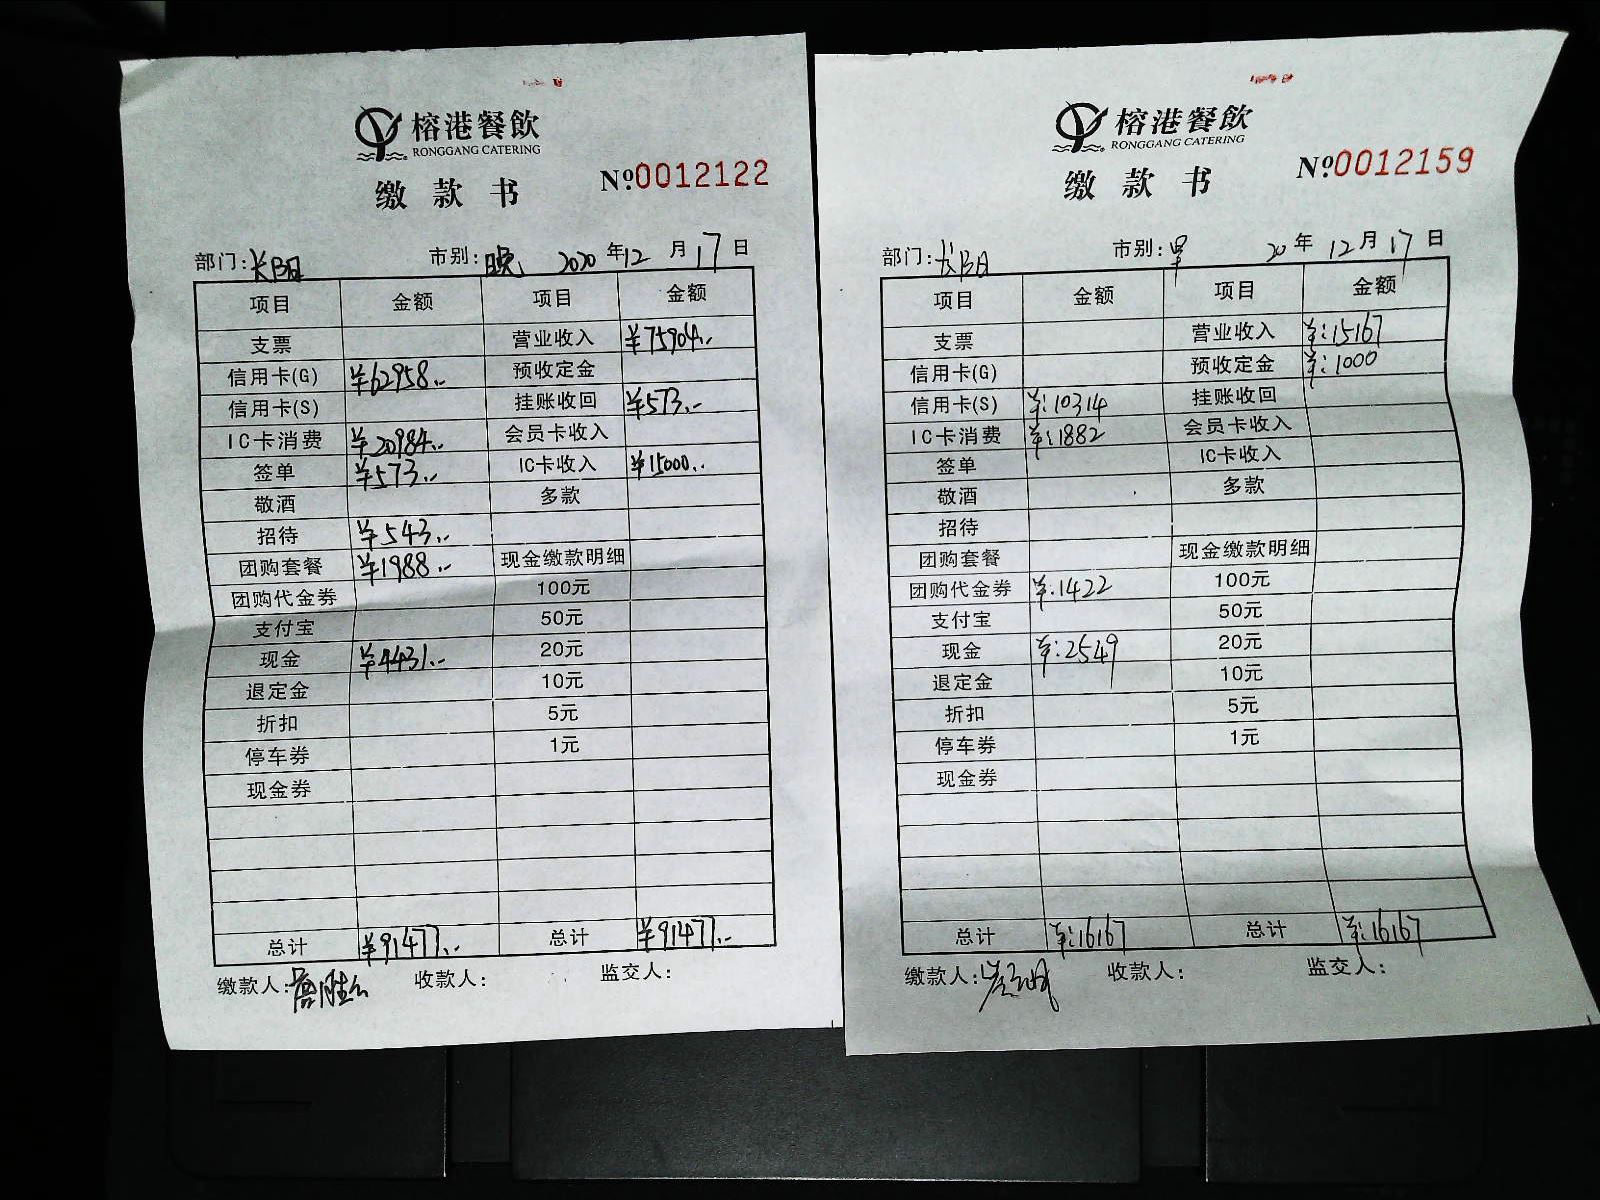 榕港餐飲
RONGGANG CATERING
缴款书
№0012122
部门:长阳 市别:晚 2020年12月17日
项目 金额 项目 金额
支票 营业收入 ¥75904.-
信用卡(G) ¥62958.- 预收定金
信用卡(S) 挂账收回 ¥573.-
IC卡消费 ¥20984.- 会员卡收入
签单 ¥573.- IC卡收入 ¥15000.-
敬酒 多款
招待 ¥543.-
团购套餐 ¥1988.- 现金缴款明细
团购代金券 100元
支付宝 50元
现金 ¥4431.- 20元
退定金 10元
折扣 5元
停车券 1元
现金券
总计 ¥91477.- 总计 ¥91477.-
缴款人: 收款人: 监交人:
榕港餐飲
RONGGANG CATERING
缴款书
№0012159
部门:长阳 市别:早 20年12月17日
项目 金额 项目 金额
支票 营业收入 ¥:15167
信用卡(G) 预收定金 ¥:1000
信用卡(S) ¥:10314 挂账收回
IC卡消费 ¥:1882 会员卡收入
签单 IC卡收入
敬酒 多款
招待
团购套餐 现金缴款明细
团购代金券 ¥:1422 100元
支付宝 50元
现金 ¥:2549 20元
退定金 10元
折扣 5元
停车券 1元
现金券
总计 ¥:16167 总计 ¥:16167
缴款人: 收款人: 监交人: